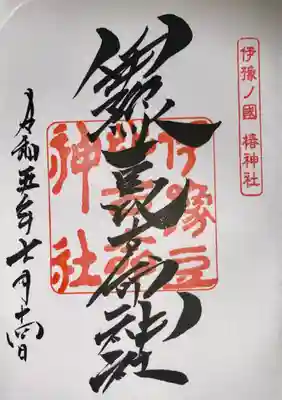 伊豫ノ國 椿神社
伊豫豆比古命神社
伊豫豆
比古命
神社
令和五年七月十四日